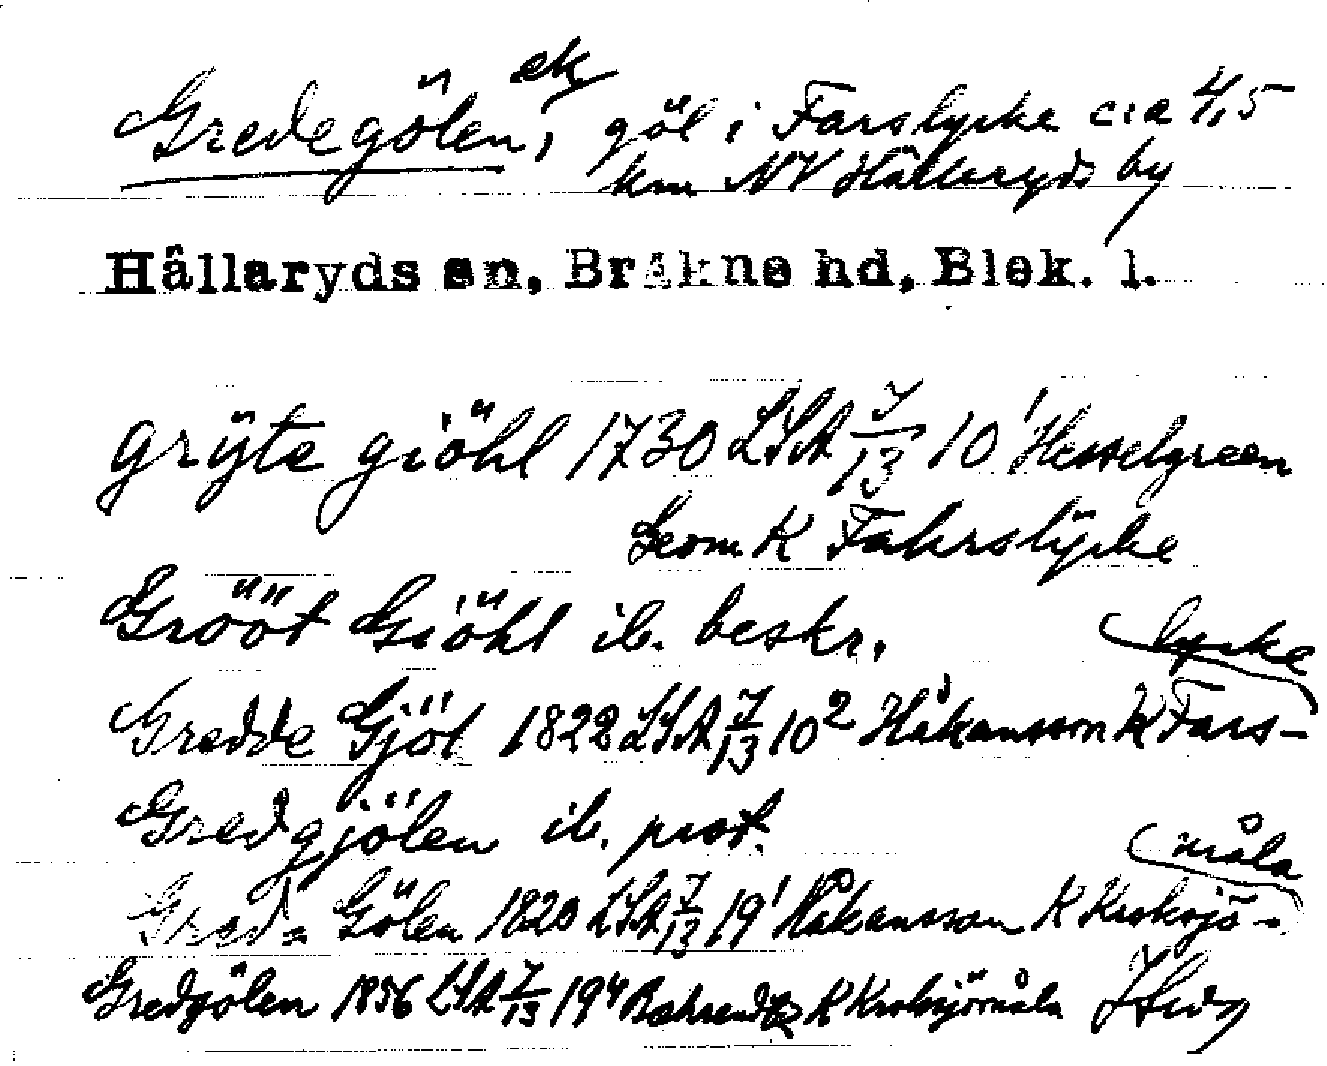 Gredegölen, ek göl i Farslycke c:a 4,5
km NV Hällaryds by
Hällaryds sn, Bräkne hd, Blek. l.
grÿte giöhl 1730 LSA J/13 10¹ Hesselgreen
Geom K Fahrslÿcke
Grööt Giöhl ib. beskr.
Gredde Gjöl 1822 LSA J/13 10² Håkansson K Fars-
lycke
Gredgjölen ib. prot.
Greda Gölen 1820 LSA J/13 19¹ Håkansson K Kroksjö-
måla
Gredgölen 1856 LSA J/13 19⁴ K Kroksjömåla